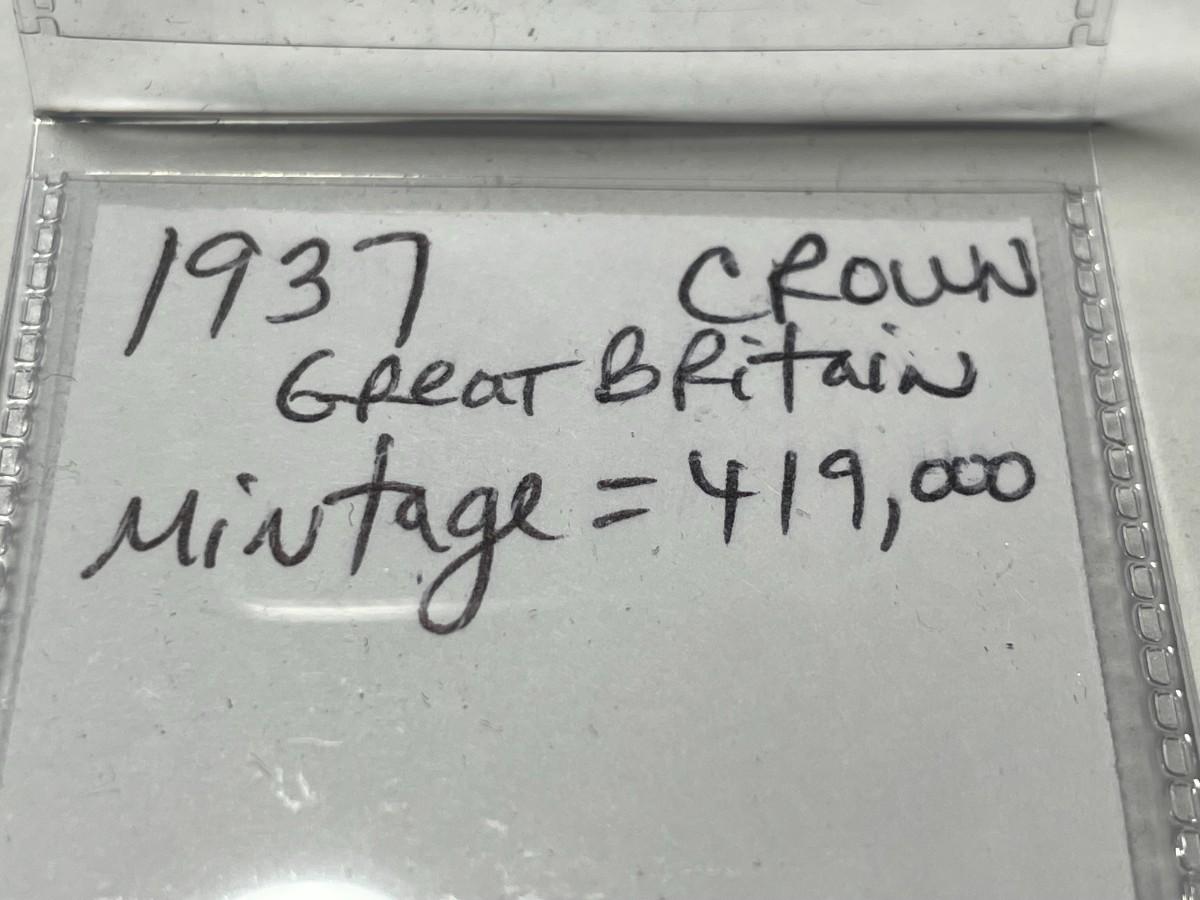 1937 CROWN
GREAT BRitain
Mintage = 419,000